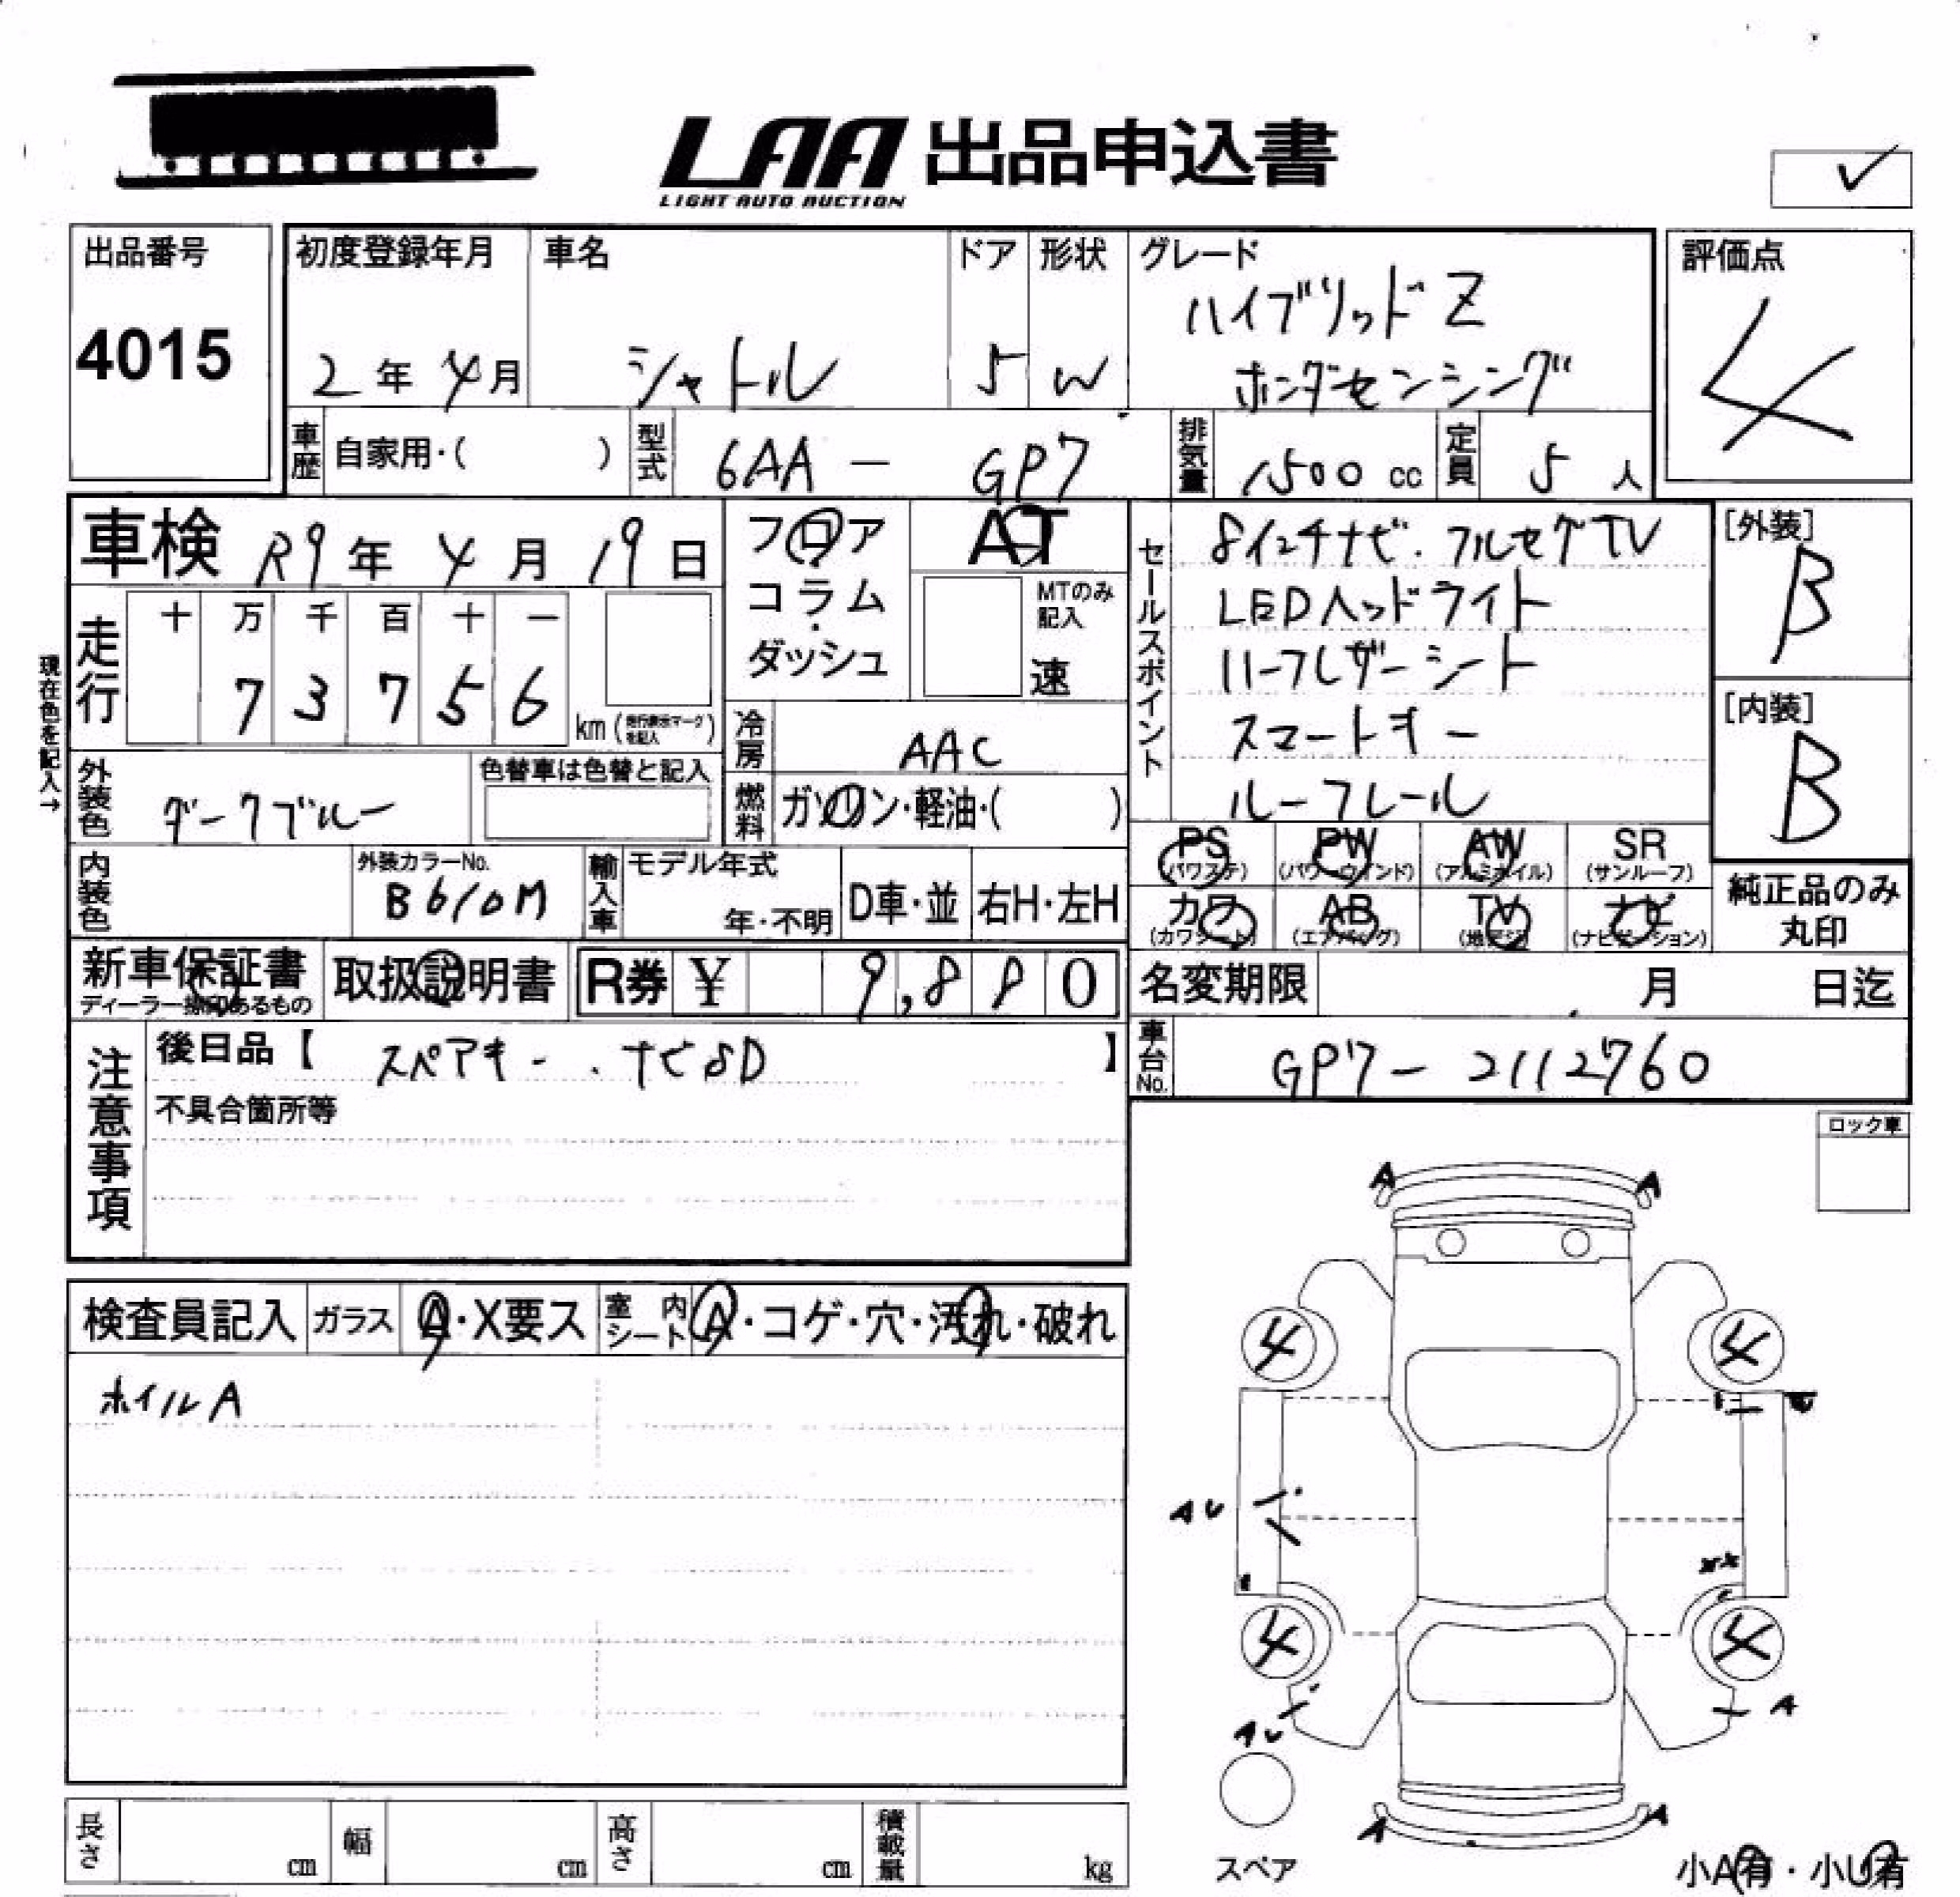 LAA 出品申込書
LIGHT AUTO AUCTION
出品番号
4015
初度登録年月
2年4月
車名
シャトル
ドア
5
形状
W
グレード
ハイブリッドZ
ホンダセンシング
評価点
4
車歴
自家用・( )
型式
6AA - GP7
排気量
1500 cc
定員
5 人
車検 R9年 4月 19日
フロア
コラム
・
ダッシュ
AT
MTのみ
記入
速
セールスポイント
8インチナビ.フルセグTV
LEDヘッドライト
ハーフレザーシート
スマートキー
ルーフレール
[外装]
B
[内装]
B
現在色を記入→
走行
十 万 千 百 十 一
7 3 7 5 6
km (走行表示マークを記入)
冷房
AAC
燃料
ガソリン・軽油・( )
外装色
ダークブルー
色替車は色替と記入
内装色
外装カラーNo.
B610M
輸入車
モデル年式
年・不明
D車・並
右H・左H
PS
(パワステ)
PW
(パワーウインド)
AW
(アルミホイル)
SR
(サンルーフ)
カワ
(カワシート)
AB
(エアバッグ)
TV
(地デジ)
ナビ
(ナビゲーション)
純正品のみ
丸印
新車保証書
ディーラー捺印あるもの
取扱説明書
R券 ¥ 9,880
名変期限 月 日迄
注意事項
後日品【 スペアキー.ナビSD 】
不具合箇所等
車台No.
GP7-2112760
ロック車
検査員記入
ガラス
A・X要ス
室内シート
A・コゲ・穴・汚れ・破れ
ホイルA
A
A
4
4
AU
4
4
AU
A
A
A
スペア
小A有・小U有
長さ
cm
幅
cm
高さ
cm
積載量
kg